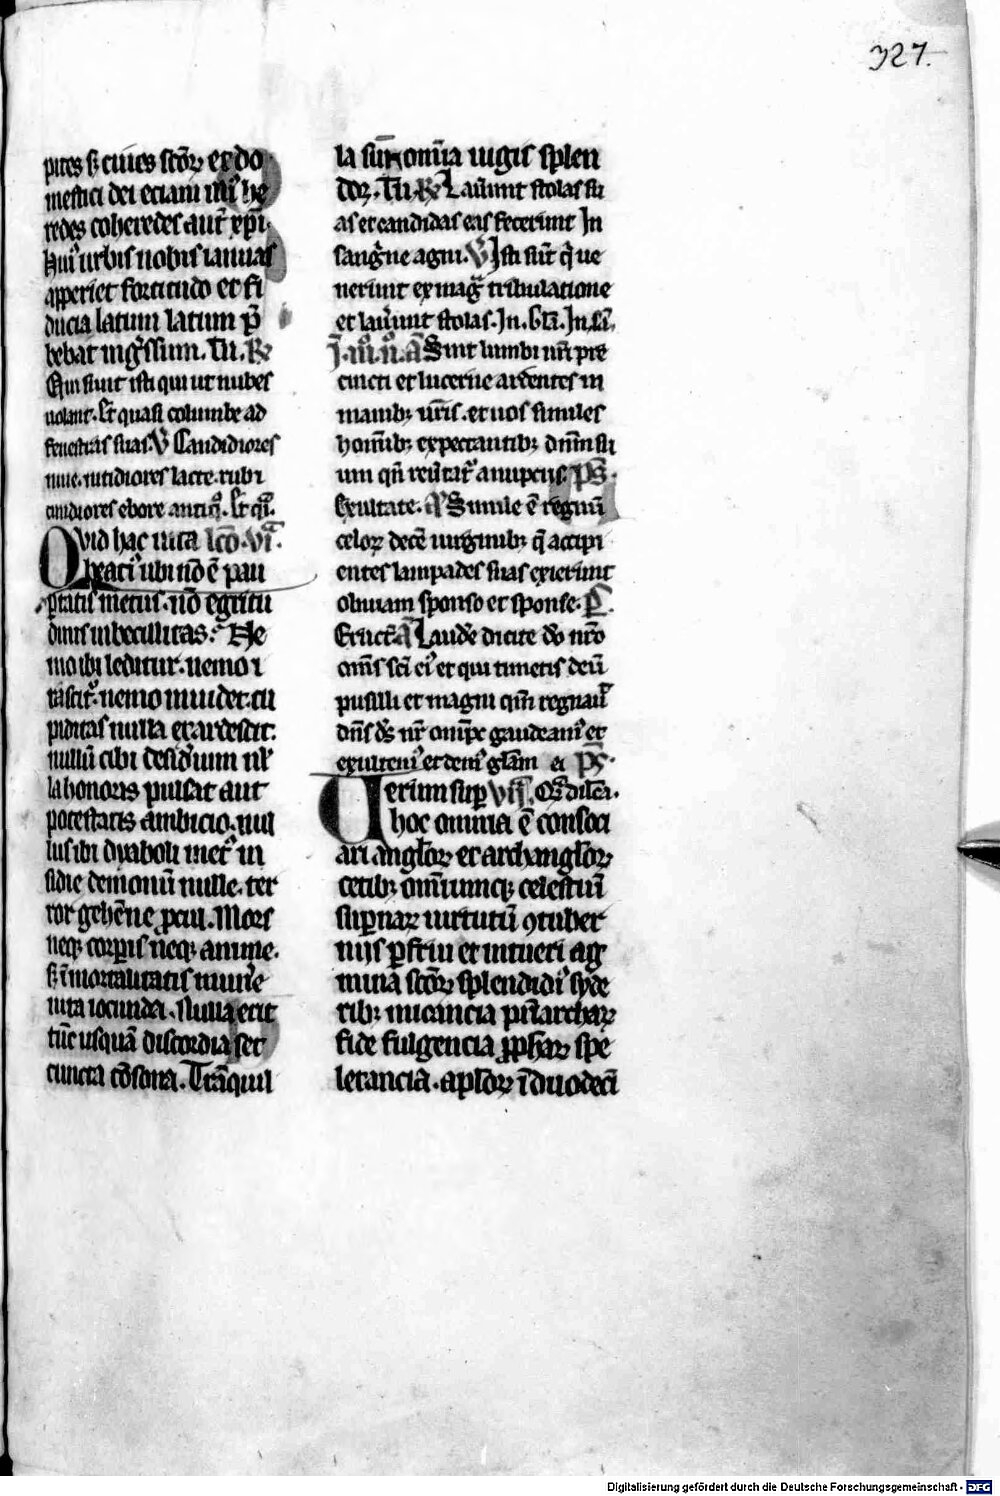 327.
pites s; ciues sc̄oꝝ et do
mestici dei etiam illiꝰ he
redes coheredes aut̄ xp̄i.
Huiꝰ urbis nobis ianuas
apperiet fortitudo et fi
ducia latum latum p̄
bebat ingͥssum. Tu. ℟
Qui sunt isti qui ut nubes
uolant. Et quasi columbe ad
fenestras suas. ℣ Candidiores
niue. nitidiores lacte. rubi
cundiores ebore antiqͦ. Et qͣ.
Quid hac uita lc̄o. vi.
beatiꝰ ubi nō ē pau
ptatis metus. nō egritu
dinis inbecillitas. Ne
mo ibi leditur. nemo i
rascit᷑. nemo inuidet. cu
piditas nulla exardescit.
nullū cibi desid̕ium nł
la honoris pulsat aut
potestatis ambicio. nul
lus ibi dyaboli metꝰ in
sidie demonū nulle. ter
ror gehēne ꝓcul. Mors
neqꝫ corpis neqꝫ anime.
s; īmortalitatis mun̕e
uita iocunda. Nulla erit
tūc usquā discordia set
cuncta cōsona. Tranquil
la sūt omīa iugis splen
dor. Tu. ℟ Lauerunt stolas su
as et candidas eas fecerunt In
sangͥne agni. ℣ Isti sūt qͥ ue
nerunt ex magͣ tribulatione
et lau̕unt stolas. In. Głi. In. sā.
I. iiiͦ. ñ. ā Sint lumbi ur̄i pre
cincti et lucerne ardentes in
manibꝫ ur̄is. et uos similes
hominibꝫ expectantibꝫ dn̄m su
um qn̄ reu̕tat᷑ a nupciis. p̄s.
Exultate. ā Simile ē regnū
celoꝝ decē uirginibꝫ q̄ accipi
entes lampades suas exierunt
obuiam sponso et sponse. p̄s.
Eructa. ā Laudē dicite dō nr̄o
om̄s sc̄i eiꝰ et qui timetis deū
pusilli et magni qm̄ regnauit
dn̄s ds̄ nr̄ om̄ps gaudeamꝰ et
exultemꝰ et demꝰ glam ei p̄s.
Uerum sup vii. Cum dil̄ca.
hoc omnia ē consoci
ari angloꝝ et archangloꝝ
cetibꝫ omniumqꝫ celestiū
supnaꝝ uirtutū ꝯtuber
niis pfrui et intueri ag
mina sc̄oꝝ splendidiꝰ syde
ribꝫ micancia pat̕archaꝝ
fide fulgencia ꝓphaꝝ spe
letancia. aploꝝ ī duodeci
Digitalisierung gefördert durch die Deutsche Forschungsgemeinschaft - DFG